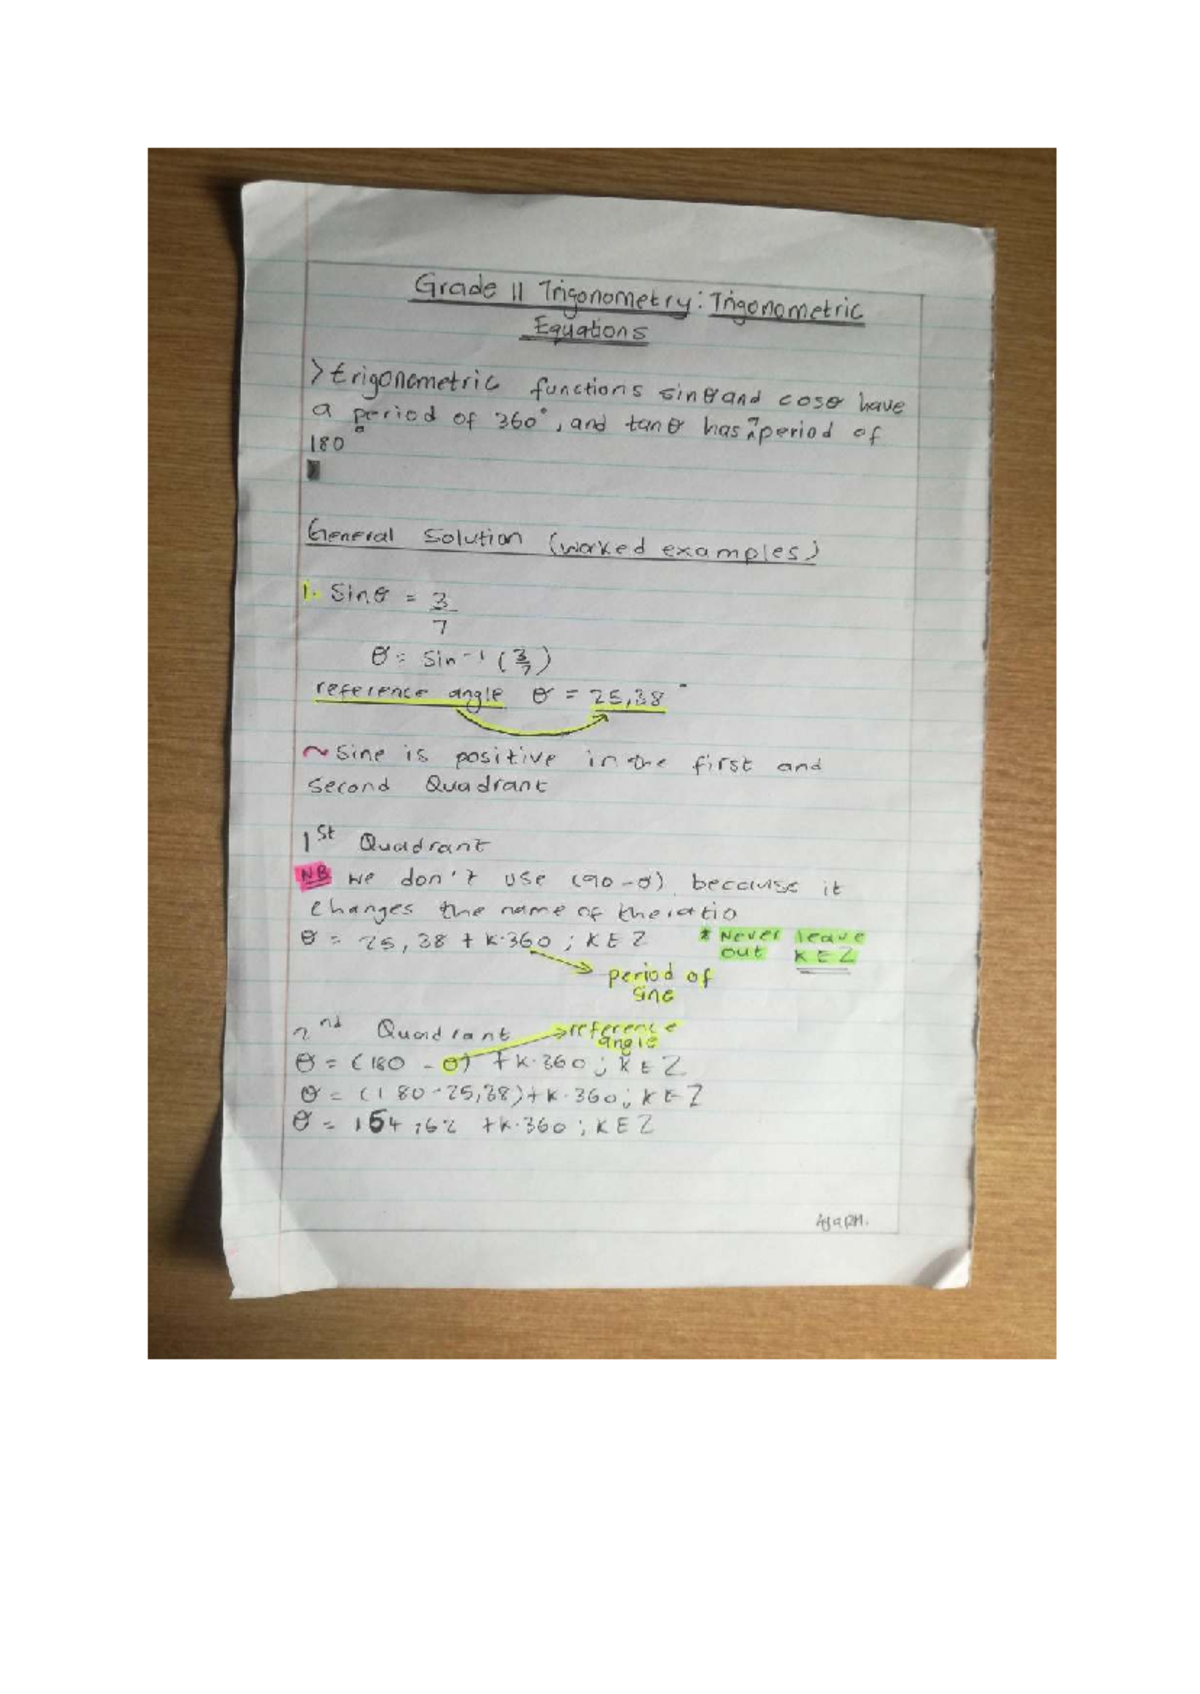 Grade 11 Trigonometry: Trigonometric
Equations
> trigonometric functions sinθ and cosθ have
a period of 360°, and tanθ has a period of
180°
General Solution (worked examples)
1. Sinθ = 3/7
θ = Sin⁻¹ (3/7)
reference angle θ = 25,38°
~ Sine is positive in the first and
Second Quadrant
1st Quadrant
NB we don't use (90-θ) because it
changes the name of the ratio
θ = 25,38 + K·360 ; K E Z
* Never leave
out K E Z
period of
sine
2nd Quadrant
reference
angle
θ = (180 - θ) + K·360 ; K E Z
θ = (180-25,38) + K·360 ; K E Z
θ = 154,62 + K·360 ; K E Z